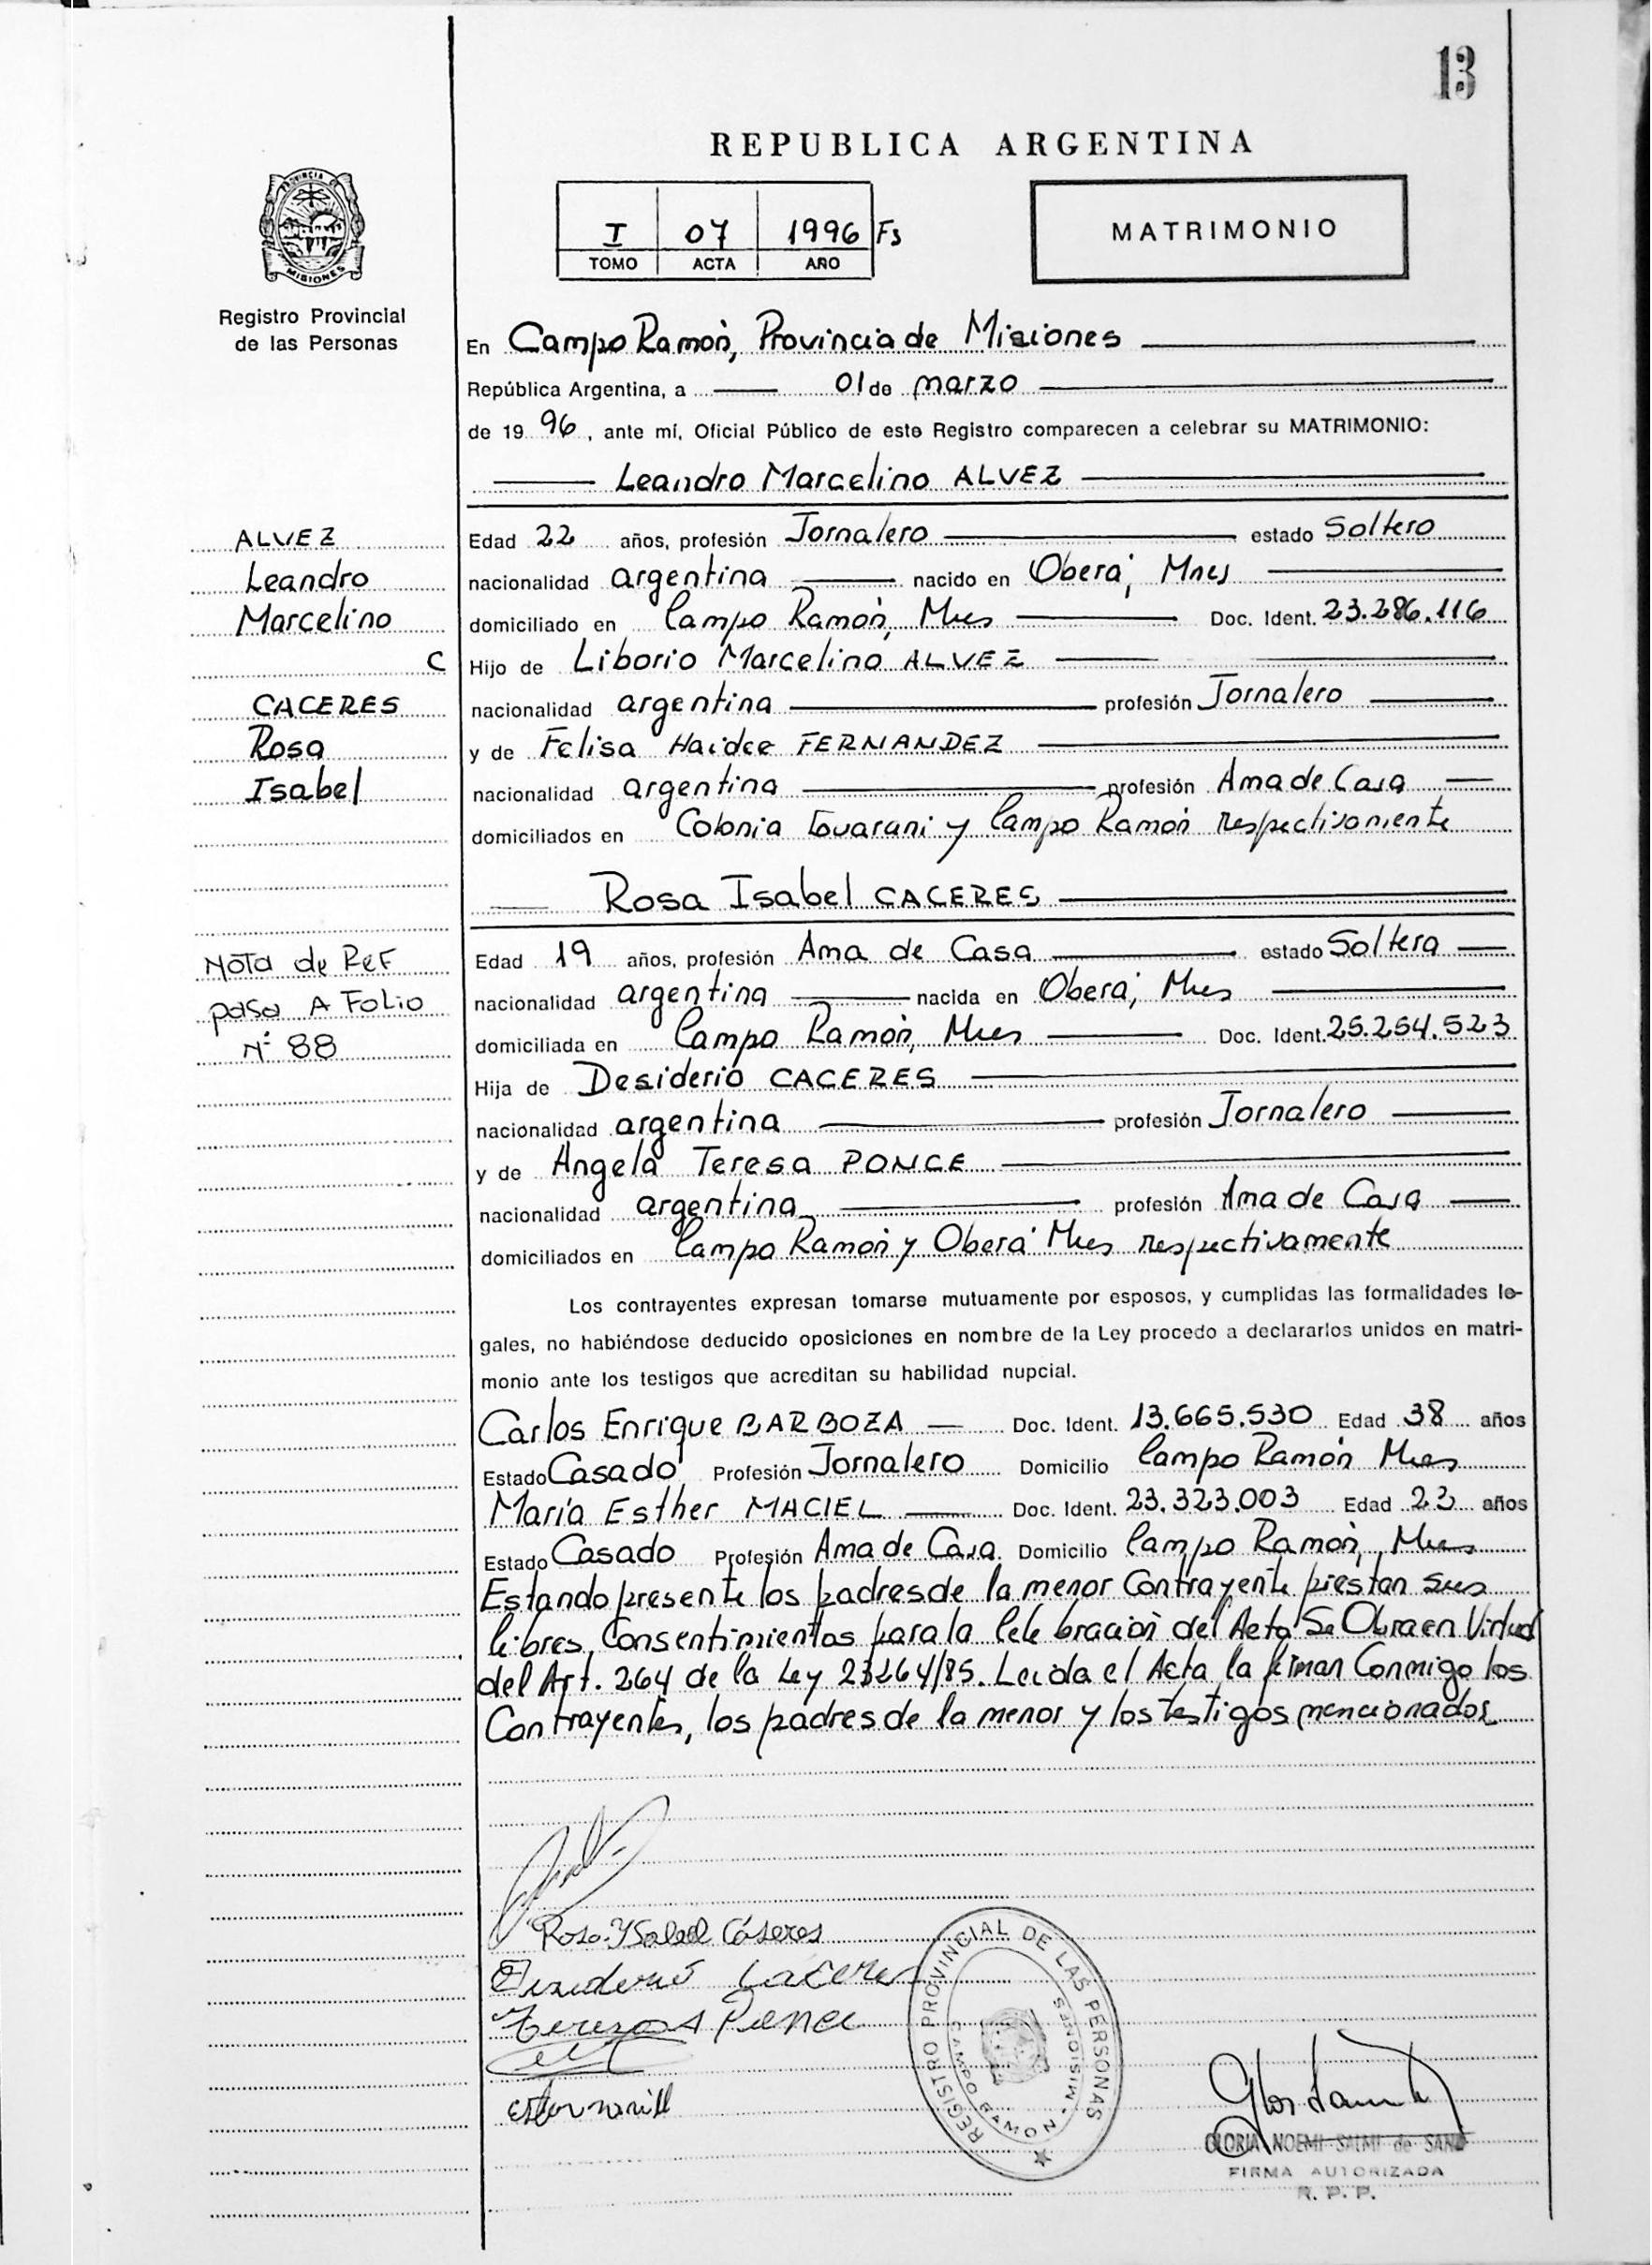 13
REPUBLICA ARGENTINA
PROVINCIA DE
MISIONES
I 07 1996 Fs
TOMO ACTA AÑO
MATRIMONIO
Registro Provincial
de las Personas
En Campo Ramón, Provincia de Misiones
República Argentina, a 01 de marzo
de 1996, ante mí, Oficial Público de este Registro comparecen a celebrar su MATRIMONIO:
Leandro Marcelino ALVEZ
ALVEZ
Leandro
Marcelino
C
CACERES
Rosa
Isabel
Edad 22 años, profesión Jornalero estado Soltero
nacionalidad argentina nacido en Oberá, Mnes
domiciliado en Campo Ramón, Mnes Doc. Ident. 23.286.116
Hijo de Liborio Marcelino ALVEZ
nacionalidad argentina profesión Jornalero
y de Felisa Haidee FERNANDEZ
nacionalidad argentina profesión Ama de Casa
domiciliados en Colonia Guarani y Campo Ramón respectivamente
Rosa Isabel CACERES
NOTA de REF
pasa A FOLIO
N° 88
Edad 19 años, profesión Ama de Casa estado Soltera
nacionalidad argentina nacida en Oberá, Mnes
domiciliada en Campo Ramón, Mnes Doc. Ident. 25.254.523
Hija de Desiderio CACERES
nacionalidad argentina profesión Jornalero
y de Angela Teresa PONCE
nacionalidad argentina profesión Ama de Casa
domiciliados en Campo Ramón y Oberá Mnes respectivamente
Los contrayentes expresan tomarse mutuamente por esposos, y cumplidas las formalidades le-
gales, no habiéndose deducido oposiciones en nombre de la Ley procedo a declararlos unidos en matri-
monio ante los testigos que acreditan su habilidad nupcial.
Carlos Enrique BARBOZA Doc. Ident. 13.665.530 Edad 38 años
Estado Casado Profesión Jornalero Domicilio Campo Ramón Mnes
María Esther MACIEL Doc. Ident. 23.323.003 Edad 23 años
Estado Casado Profesión Ama de Casa Domicilio Campo Ramón, Mnes
Estando presente los padres de la menor Contrayente prestan sus
libres Consentimientos para la Celebración del Acto Se Obra en Virtud
del Art. 264 de la Ley 23264/85. Leida el Acta la firman Conmigo los
Contrayentes, los padres de la menor y los testigos mencionados
Rosa Ysabel Cáseres
Desiderio Caceres
Teresa A Ponce
REGISTRO PROVINCIAL DE LAS PERSONAS
CAMPO RAMON - MISIONES
GLORIA NOEMI SALMI de SAND
FIRMA AUTORIZADA
R. P. P.